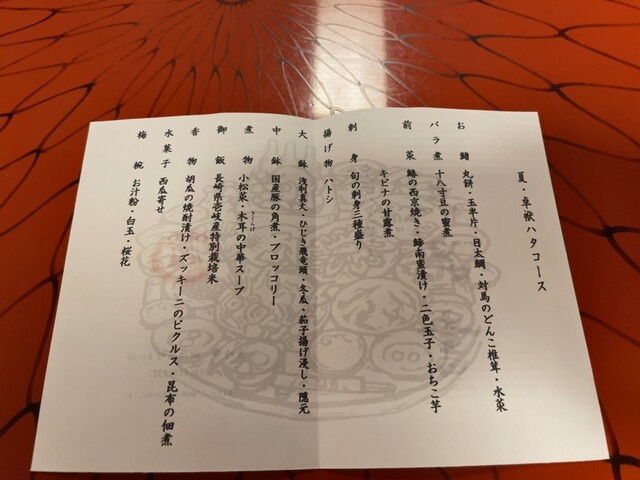 夏・卓袱ハタコース
お鰭 丸餅・玉半片・目太鯛・対馬のどんこ椎茸・水菜
バラ煮 十八寸豆の蜜煮
前菜 鰆の西京焼き・鯵南蛮漬け・二色玉子・おちこ芋
キビナの甘露煮
刺身 旬の刺身三種盛り
揚げ物 ハトシ
大鉢 浅利真丈・ひじき飛竜頭・冬瓜・茄子揚げ浸し・隠元
中鉢 国産豚の角煮・ブロッコリー
煮物 小松菜・木耳の中華スープ
御飯 長崎県壱岐産特別栽培米
香物 胡瓜の焼酎漬け・ズッキーニのピクルス・昆布の佃煮
水菓子 西瓜寄せ
梅椀 お汁粉・白玉・桜花